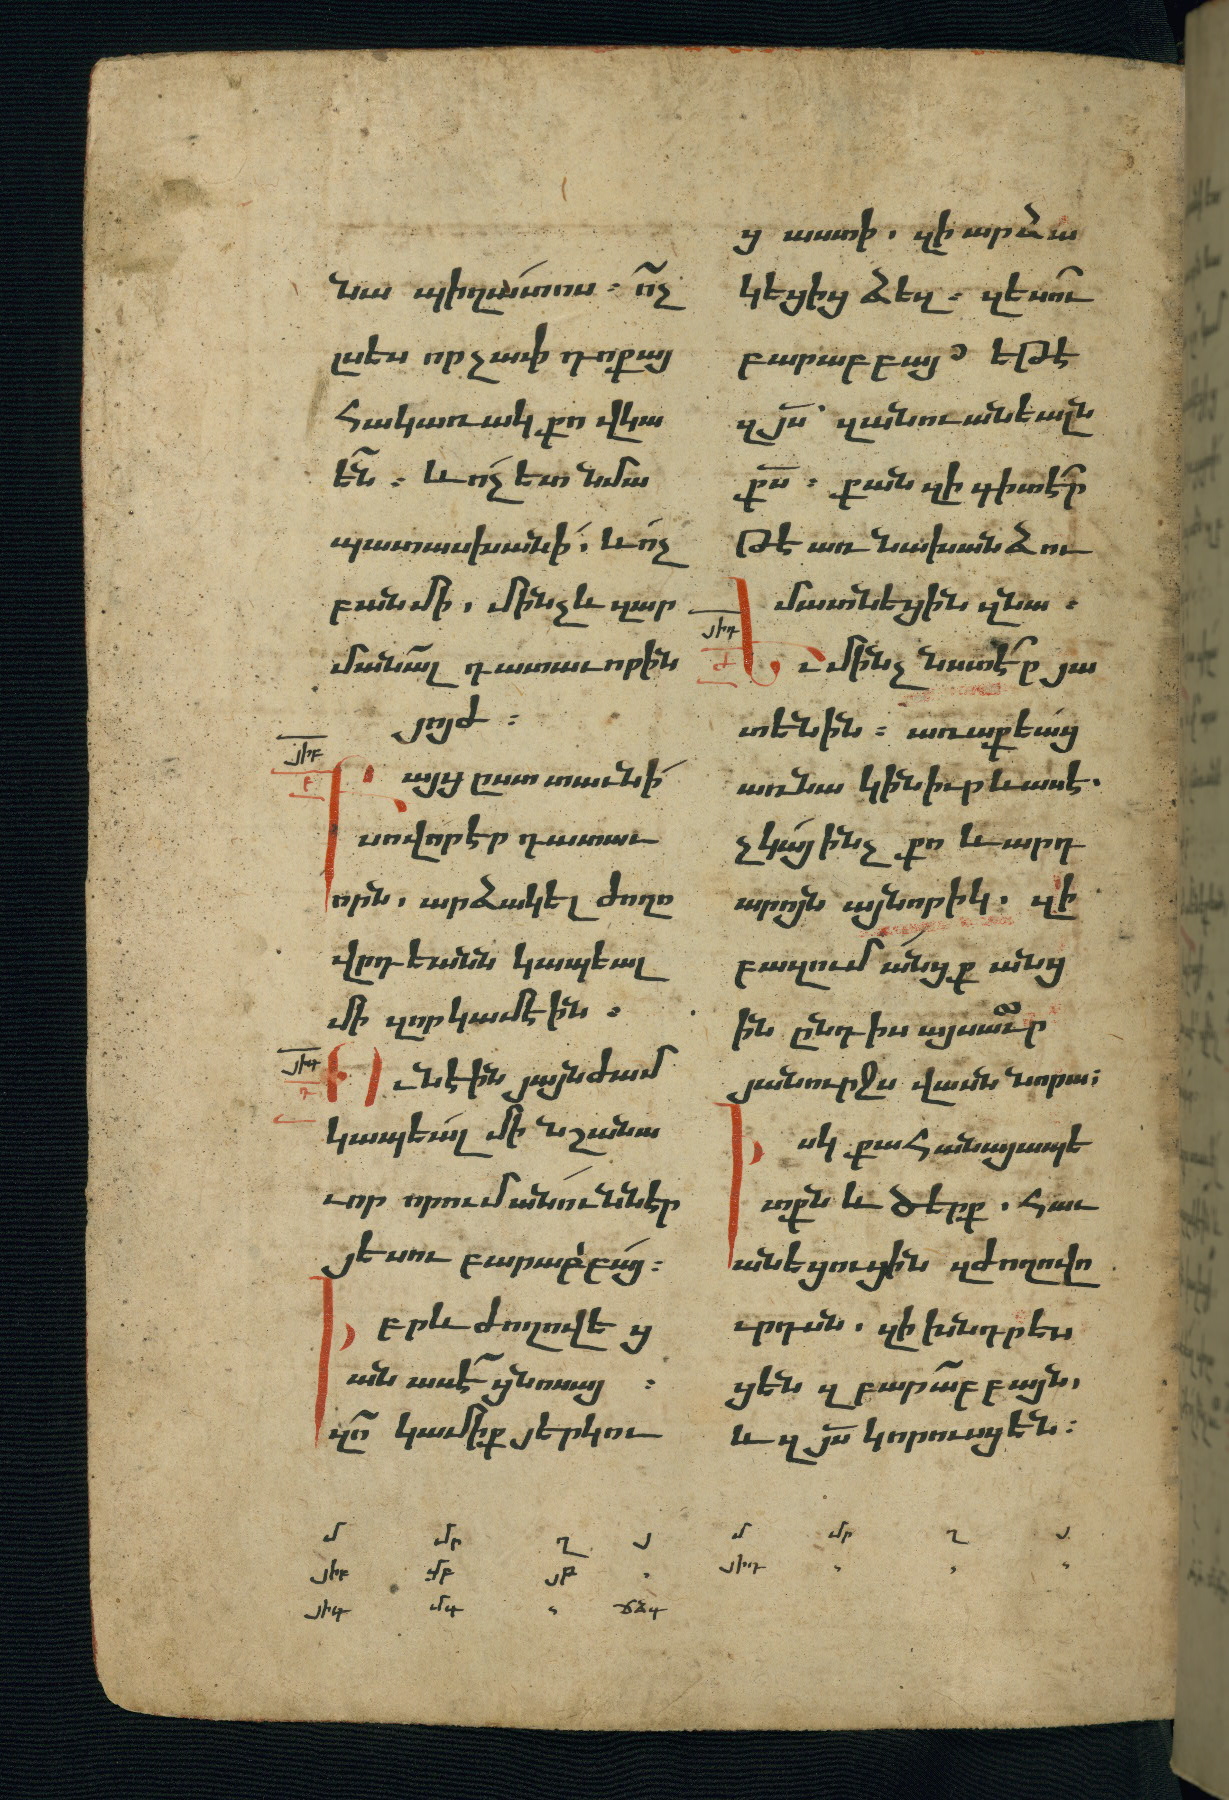 նա պիղատոս։ ո՞չ
լսես որչափ դոքայ
հակառակ քո վկա
են։ և ոչ ետ նմա
պատասխանի՛. և ոչ
բանմի. մինչև զար
մանալ դատաւորին
յոյժ։
յիբ
այց ըստ տաւնի՛
սովոր էր դատաւ
որն. արձակել ժողո
վրդեանն կապեալ
մի զոր կամէին։
յիգ
ւնէին յայնժամ
կապեալ մի նշանա
ւոր որում անուն ներ
յեսու բարաբբայ։
բրև ժողովե ց
ան ասէ ցնոսայ ։
զո՞ կամիք յերկու
ց աստի. զի արձա
կեցից ձեզ. զեսու
բարաբբայ՞ եթէ
զյս՝ զանուանեալն
քս։ քան զի գիտէր
թէ առ նախանձու
մատնեցին զնա։
յիդ
ւ մինչ նստէր յա
տենին։ առաքեաց
առ նա կին իւր և ասէ.
չկայ ինչ քո և արդ
արոյն այնորիկ. զի
բազում անցք անց
ին ընդ իս այսաւր
յանուրջս վասն նորա։
սկ քահանայապե
տքն և ծերք. հաւ
անեցուցին զժողովո
ւրդսն. զի խնդրես
ցեն զբարաբբայն.
և զյս կորուսցեն։
մ մր ղ յ
յիբ մբ յթ
յիգ մգ ճձգ
մ մր ղ յ
յիդ